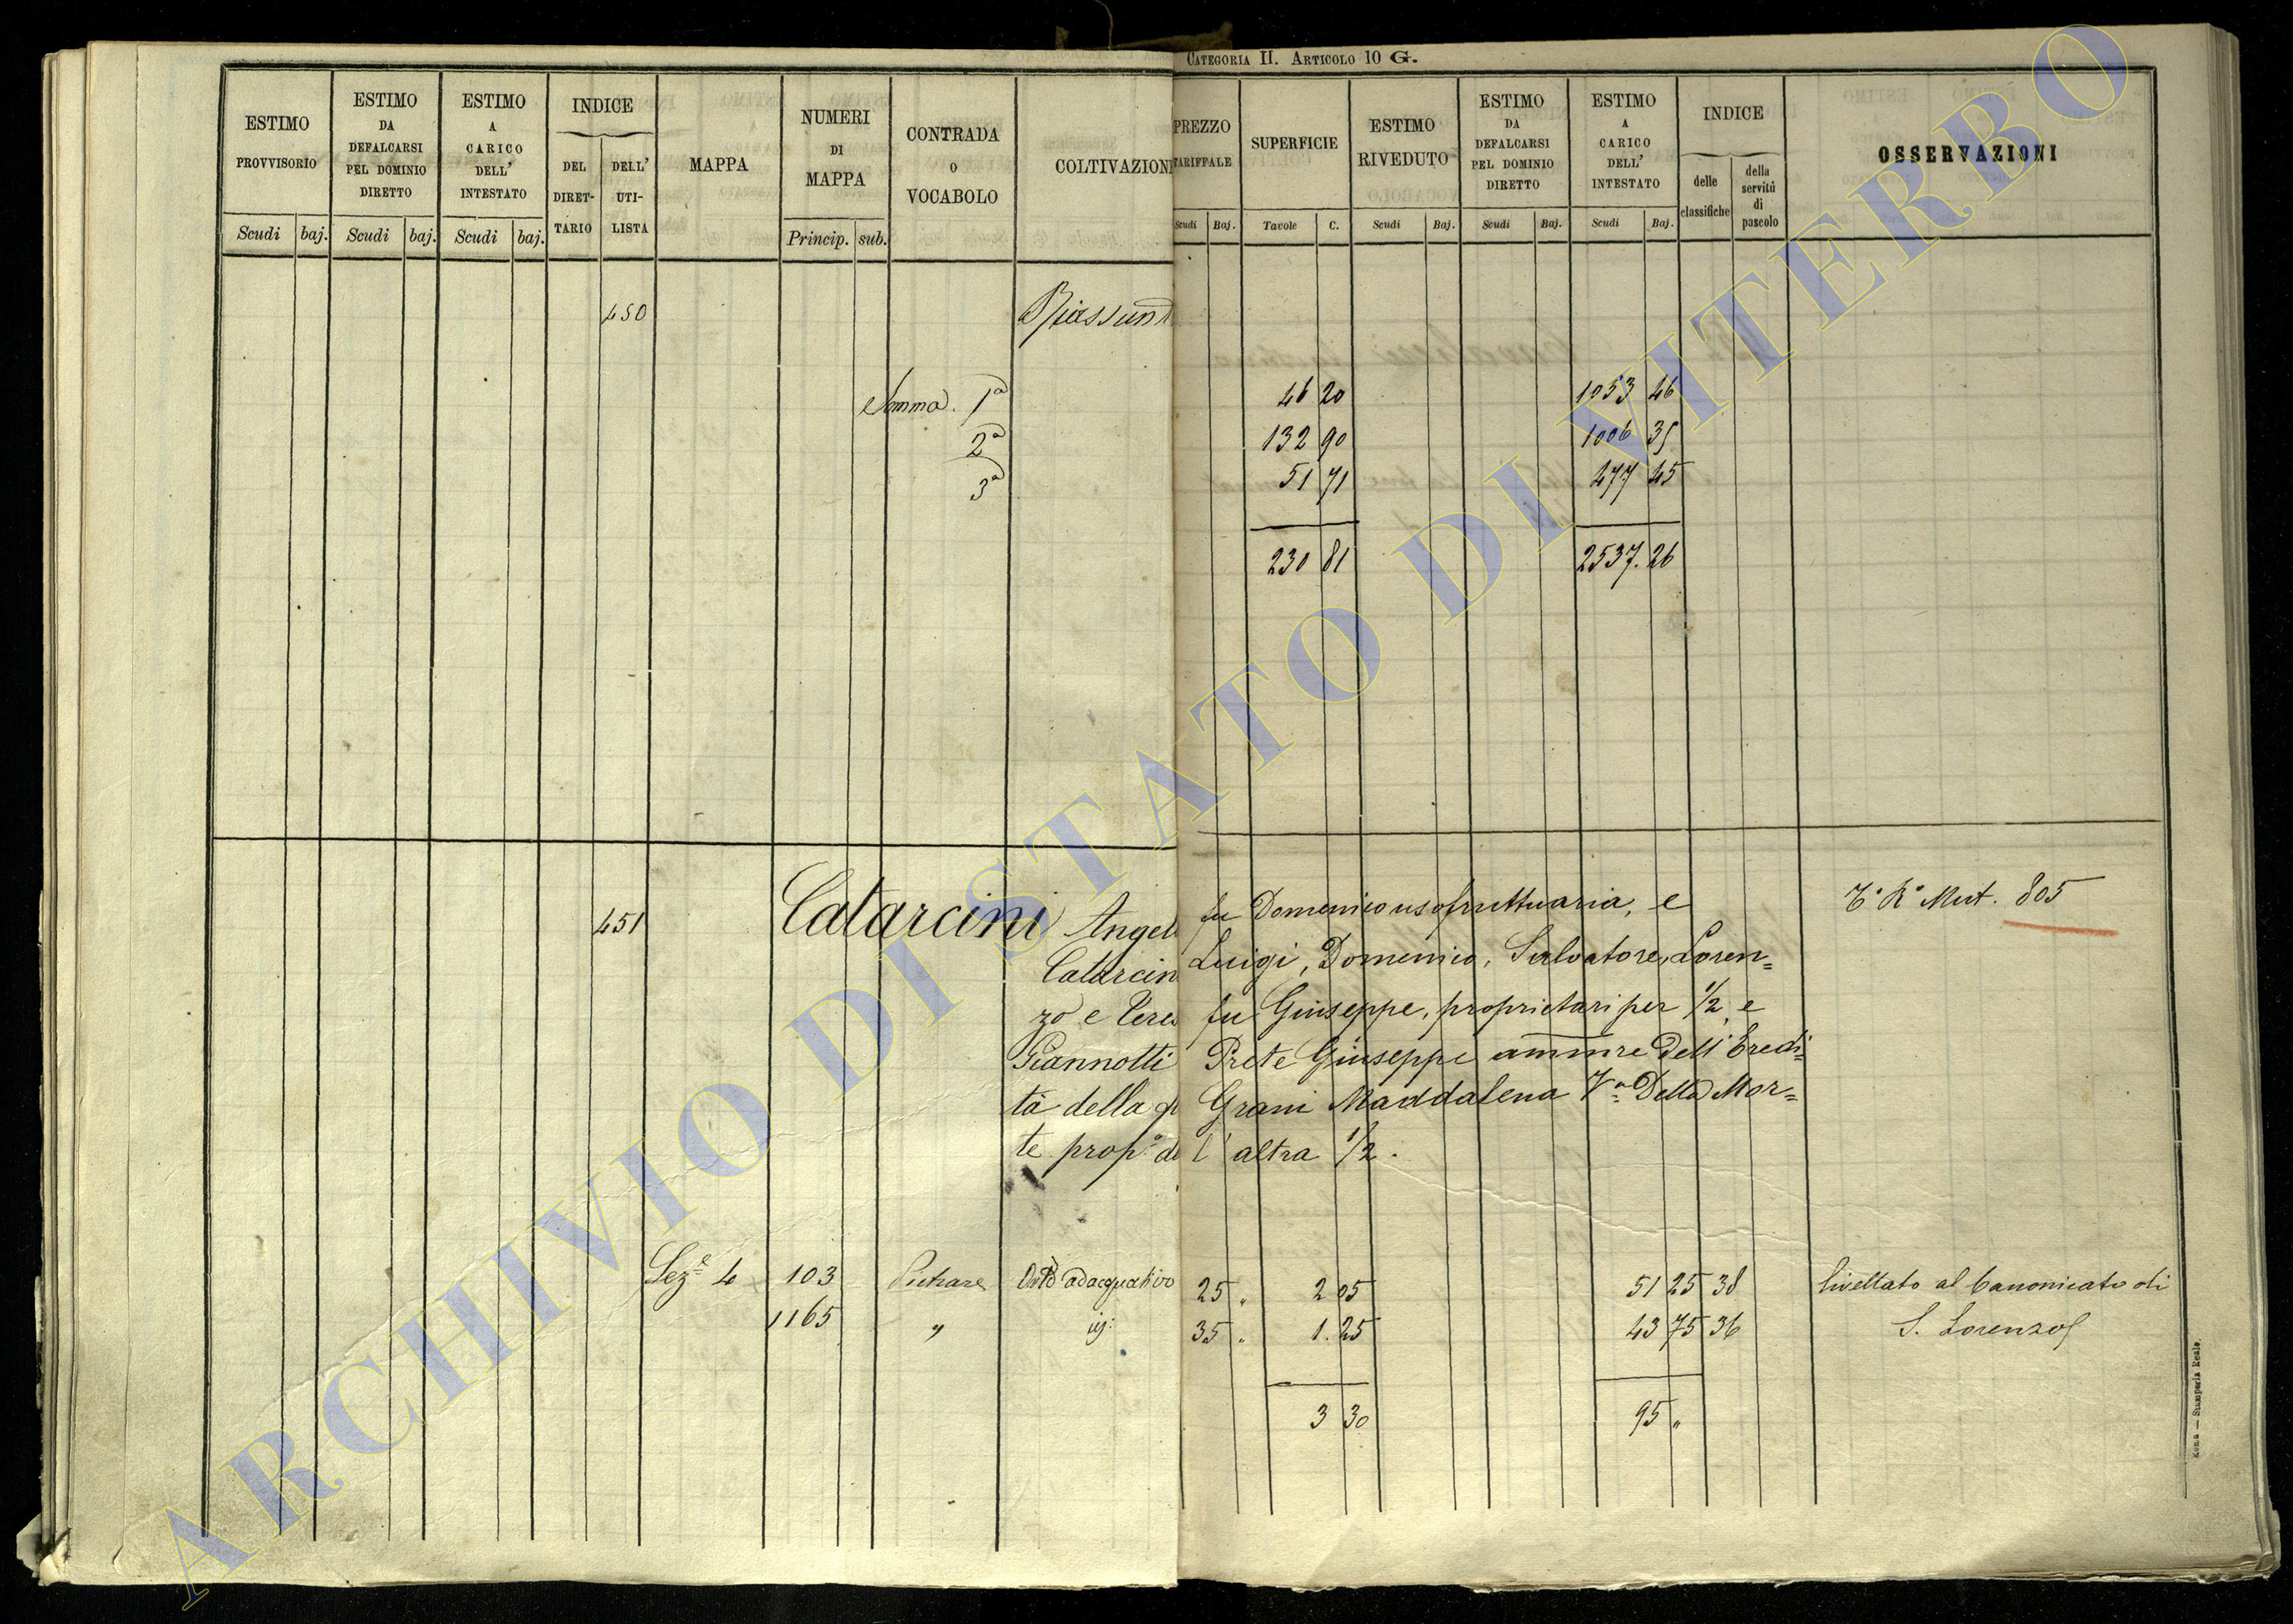 CATEGORIA II. ARTICOLO 10 G.
ESTIMO PROVVISORIO
Scudi baj.
ESTIMO DA DEFALCARSI PEL DOMINIO DIRETTO
Scudi baj.
ESTIMO A CARICO DELL' INTESTATO
Scudi baj.
INDICE
DEL DIRET-TARIO
DELL' UTI-LISTA
MAPPA
NUMERI DI MAPPA
Princip. sub.
CONTRADA O VOCABOLO
COLTIVAZION
PREZZO TARIFFALE
Scudi Baj.
SUPERFICIE
Tavole C.
ESTIMO RIVEDUTO
Scudi Baj.
ESTIMO DA DEFALCARSI PEL DOMINIO DIRETTO
Scudi Baj.
ESTIMO A CARICO DELL' INTESTATO
Scudi Baj.
INDICE
delle classifiche
della servitù di pascolo
OSSERVAZIONI
450 Riassunt
Somma. 1ª 46 20 1053 46
2ª 132 90 1006 35
3ª 51 71 477 45
230 81 2537. 26
451 Catarcini Angel fu Domenico usofruttuaria, e
Catarcin Luigi, Domenico, Salvatore, Loren=
zo e Teres fu Giuseppe, proprietari per 1/2, e
Giannotti Prete Giuseppe ammre dell' Eredi=
tà della q Grani Maddalena Vª Della Mor=
te propº de l' altra 1/2.
Mut. 805
Sezᵉ 4 103 Pietrare Orto adacquativo 25 „ 2 05 51 25 38 livellato al Canonicato di
1165 „ id: 35 „ 1. 25 43 75 36 S. Lorenzo
3 30 95 „
Roma — Stamperia Reale.
ARCHIVIO DI STATO DI VITERBO